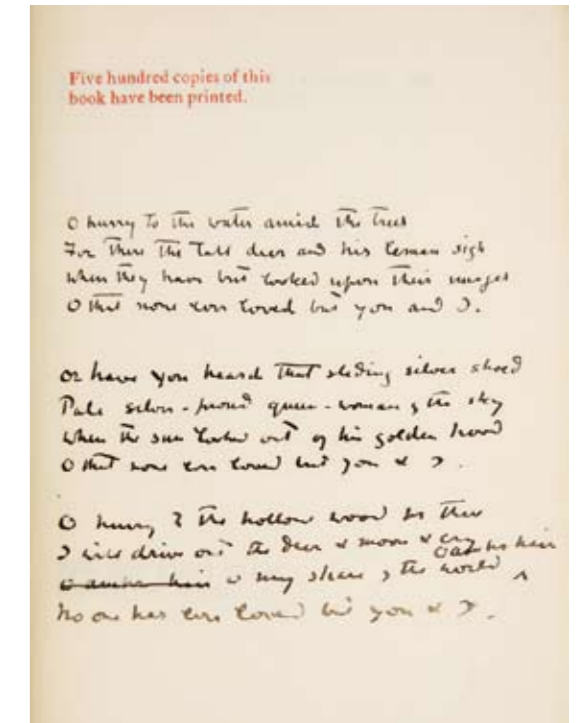 Five hundred copies of this
book have been printed.
O hurry to the water amid the trees
For there the tall deer and his leman sigh
When they have but looked upon their images
O that none ever loved but you and I.
Or have you heard that sliding silver shoed
Pale silver-proud queen-woman of the sky
When the sun looked out of his golden hood
O that none ever loved but you & I.
O hurry to the hollow wood for there
I will drive out the deer & moon & cry
O amber hair
O amber hair O my share of the world ^
No one has ever loved but you & I.